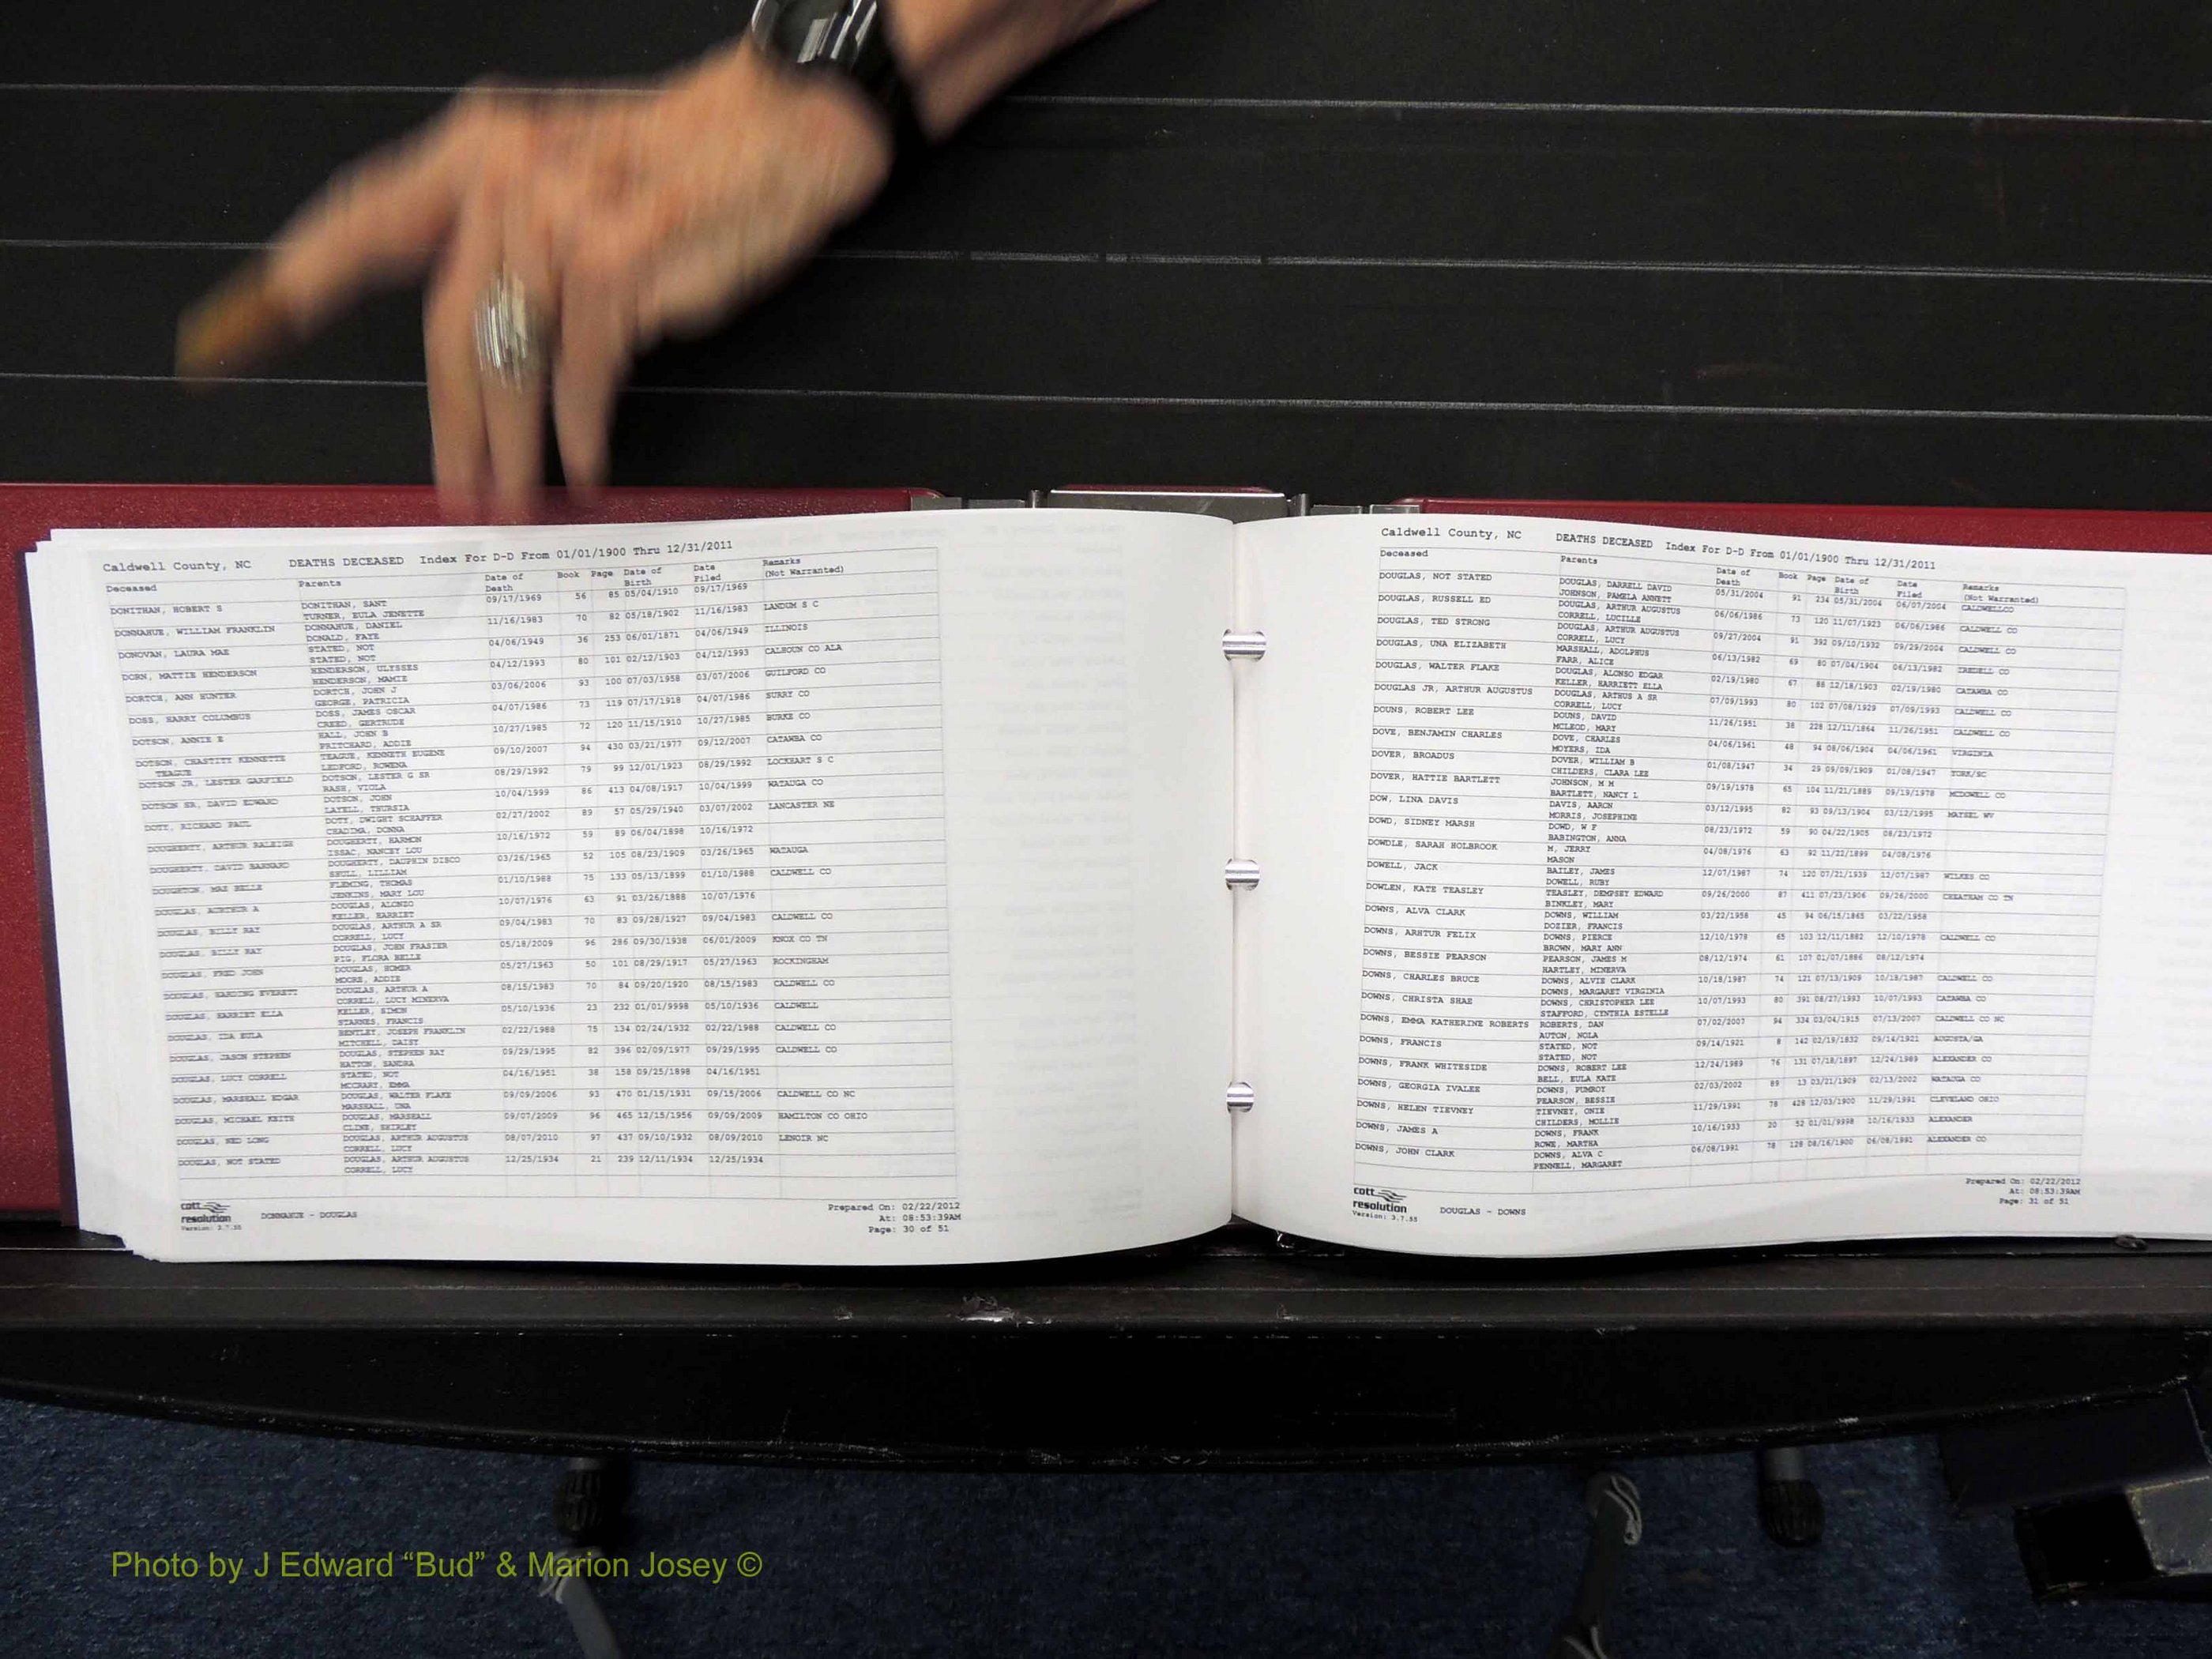 Caldwell County, NC DEATHS DECEASED Index For D-D From 01/01/1900 Thru 12/31/2011
Deceased Parents Date of Death Book Page Date of Birth Date Filed Remarks (Not Warranted)
DONITHAN, HOBERT S DONITHAN, SANT 09/17/1969 56 85 05/04/1910 09/17/1969
TURNER, EULA JENETTE
DONNAHUE, WILLIAM FRANKLIN DONNAHUE, DANIEL 11/16/1983 70 82 05/18/1902 11/16/1983 LANDUM S C
DONALD, FAYE
DONOVAN, LAURA MAE STATED, NOT 04/06/1949 36 253 06/01/1871 04/06/1949 ILLINOIS
STATED, NOT
DORN, MATTIE HENDERSON HENDERSON, ULYSSES 04/12/1993 80 101 02/12/1903 04/12/1993 CALHOUN CO ALA
HENDERSON, MAMIE
DORTCH, ANN HUNTER DORTCH, JOHN J 03/06/2006 93 100 07/03/1958 03/07/2006 GUILFORD CO
GEORGE, PATRICIA
DOSS, HARRY COLUMBUS DOSS, JAMES OSCAR 04/07/1986 73 119 07/17/1918 04/07/1986 SURRY CO
CREED, GERTRUDE
DOTSON, ANNIE E HALL, JOHN B 10/27/1985 72 120 11/15/1910 10/27/1985 BURKE CO
PRITCHARD, ADDIE
DOTSON, CHASTITY KENNETTE TEAGUE, KENNETH EUGENE 09/10/2007 94 430 03/21/1977 09/12/2007 CATAWBA CO
TEAGUE LEDFORD, ROWENA
DOTSON JR, LESTER GARFIELD DOTSON, LESTER G SR 08/29/1992 79 99 12/01/1923 08/29/1992 LOCKHART S C
RASH, VIOLA
DOTSON SR, DAVID EDWARD DOTSON, JOHN 10/04/1999 86 413 04/08/1917 10/04/1999 WATAUGA CO
LAYELL, THURSIA
DOTY, RICHARD PAUL DOTY, DWIGHT SCHAFFER 02/27/2002 89 57 05/29/1940 03/07/2002 LANCASTER NE
CHADIMA, DONNA
DOUGHERTY, ARTHUR RALEIGH DOUGHERTY, HARMON 10/16/1972 59 89 06/04/1898 10/16/1972
ISSAC, NANCEY LOU
DOUGHERTY, DAVID BARNARD DOUGHERTY, DAUPHIN DISCO 03/26/1965 52 105 08/23/1909 03/26/1965 WATAUGA
SHULL, LILLIAM
DOUGHTON, MAE BELLE FLEMING, THOMAS 01/10/1988 75 133 05/13/1899 01/10/1988 CALDWELL CO
JENKINS, MARY LOU
DOUGLAS, AURTHUR A DOUGLAS, ALONZO 10/07/1976 63 91 03/26/1888 10/07/1976
KELLER, HARRIET
DOUGLAS, BILLY RAY DOUGLAS, ARTHUR A SR 09/04/1983 70 83 09/28/1927 09/04/1983 CALDWELL CO
CORRELL, LUCY
DOUGLAS, BILLY RAY DOUGLAS, JOHN FRASIER 05/18/2009 96 286 09/30/1938 06/01/2009 KNOX CO TN
PIG, FLORA BELLE
DOUGLAS, FRED JOHN DOUGLAS, HOMER 05/27/1963 50 101 08/29/1917 05/27/1963 ROCKINGHAM
MOORE, ADDIE
DOUGLAS, HARDING EVERETT DOUGLAS, ARTHUR A 08/15/1983 70 84 09/20/1920 08/15/1983 CALDWELL CO
CORRELL, LUCY MINERVA
DOUGLAS, HARRIET ELLA KELLER, SIMON 05/10/1936 23 232 01/01/9998 05/10/1936 CALDWELL
STARNES, FRANCIS
DOUGLAS, IDA EULA BENTLEY, JOSEPH FRANKLIN 02/22/1988 75 134 02/24/1932 02/22/1988 CALDWELL CO
MITCHELL, DAISY
DOUGLAS, JASON STEPHEN DOUGLAS, STEPHEN RAY 09/29/1995 82 396 02/09/1977 09/29/1995 CALDWELL CO
HATTON, SANDRA
DOUGLAS, LUCY CORRELL STATED, NOT 04/16/1951 38 158 09/25/1898 04/16/1951
MCCRARY, EMMA
DOUGLAS, MARSHALL EDGAR DOUGLAS, WALTER FLAKE 09/09/2006 93 470 01/15/1931 09/15/2006 CALDWELL CO NC
MARSHALL, UNA
DOUGLAS, MICHAEL KEITH DOUGLAS, MARSHALL 09/07/2009 96 465 12/15/1956 09/09/2009 HAMILTON CO OHIO
CLINE, SHIRLEY
DOUGLAS, NED LONG DOUGLAS, ARTHUR AUGUSTUS 08/07/2010 97 437 09/10/1932 08/09/2010 LENOIR NC
CORRELL, LUCY
DOUGLAS, NOT STATED DOUGLAS, ARTHUR AUGUSTUS 12/25/1934 21 239 12/11/1934 12/25/1934
CORRELL, LUCY
cott
resolution DONNAHUE - DOUGLAS
Version: 3.7.55
Prepared On: 02/22/2012
At: 08:53:39AM
Page: 30 of 51
Caldwell County, NC DEATHS DECEASED Index For D-D From 01/01/1900 Thru 12/31/2011
Deceased Parents Date of Death Book Page Date of Birth Date Filed Remarks (Not Warranted)
DOUGLAS, NOT STATED DOUGLAS, DARRELL DAVID 05/31/2004 91 234 05/31/2004 06/07/2004 CALDWELLCO
JOHNSON, PAMELA ANNETT
DOUGLAS, RUSSELL ED DOUGLAS, ARTHUR AUGUSTUS 06/06/1986 73 120 11/07/1923 06/06/1986 CALDWELL CO
CORRELL, LUCILLE
DOUGLAS, TED STRONG DOUGLAS, ARTHUR AUGUSTUS 09/27/2004 91 392 09/10/1932 09/29/2004 CALDWELL CO
CORRELL, LUCY
DOUGLAS, UNA ELIZABETH MARSHALL, ADOLPHUS 06/13/1982 69 80 07/04/1904 06/13/1982 IREDELL CO
FARR, ALICE
DOUGLAS, WALTER FLAKE DOUGLAS, ALONSO EDGAR 02/19/1980 67 88 12/18/1903 02/19/1980 CATAWBA CO
KELLER, HARRIETT ELLA
DOUGLAS JR, ARTHUR AUGUSTUS DOUGLAS, ARTHUS A SR 07/09/1993 80 102 07/08/1929 07/09/1993 CALDWELL CO
CORRELL, LUCY
DOUNS, ROBERT LEE DOUNS, DAVID 11/26/1951 38 228 12/11/1864 11/26/1951 CALDWELL CO
MCLEOD, MARY
DOVE, BENJAMIN CHARLES DOVE, CHARLES 04/06/1961 48 94 08/06/1904 04/06/1961 VIRGINIA
MOYERS, IDA
DOVER, BROADUS DOVER, WILLIAM B 01/08/1947 34 29 09/09/1909 01/08/1947 YORK/SC
CHILDERS, CLARA LEE
DOVER, HATTIE BARTLETT JOHNSON, M M 09/19/1978 65 104 11/21/1889 09/19/1978 MCDOWELL CO
BARTLETT, NANCY L
DOW, LINA DAVIS DAVIS, AARON 03/12/1995 82 93 09/13/1904 03/12/1995 MAYSEL WV
MORRIS, JOSEPHINE
DOWD, SIDNEY MARSH DOWD, W F 08/23/1972 59 90 04/22/1905 08/23/1972
BABINGTON, ANNA
DOWDLE, SARAH HOLBROOK M, JERRY 04/08/1976 63 92 11/22/1899 04/08/1976
MASON
DOWELL, JACK BAILEY, JAMES 12/07/1987 74 120 07/21/1939 12/07/1987 WILKES CO
DOWELL, RUBY
DOWLEN, KATE TEASLEY TEASLEY, DEMPSEY EDWARD 09/26/2000 87 411 07/23/1906 09/26/2000 CHEATHAM CO TN
BINKLEY, MARY
DOWNS, ALVA CLARK DOWNS, WILLIAM 03/22/1958 45 94 06/15/1865 03/22/1958
DOZIER, FRANCIS
DOWNS, ARHTUR FELIX DOWNS, PIERCE 12/10/1978 65 103 12/11/1882 12/10/1978 CALDWELL CO
BROWN, MARY ANN
DOWNS, BESSIE PEARSON PEARSON, JAMES M 08/12/1974 61 107 01/07/1886 08/12/1974
HARTLEY, MINERVA
DOWNS, CHARLES BRUCE DOWNS, ALVIE CLARK 10/18/1987 74 121 07/13/1909 10/18/1987 CALDWELL CO
DOWNS, MARGARET VIRGINIA
DOWNS, CHRISTA SHAE DOWNS, CHRISTOPHER LEE 10/07/1993 80 391 08/27/1993 10/07/1993 CATAWBA CO
STAFFORD, CYNTHIA ESTELLE
DOWNS, EMMA KATHERINE ROBERTS ROBERTS, DAN 07/02/2007 94 334 03/04/1915 07/13/2007 CALDWELL CO NC
AUTON, NOLA
DOWNS, FRANCIS STATED, NOT 09/14/1921 8 142 02/19/1832 09/14/1921 AUGUSTA/GA
STATED, NOT
DOWNS, FRANK WHITESIDE DOWNS, ROBERT LEE 12/24/1989 76 131 07/18/1897 12/24/1989 ALEXANDER CO
BELL, EULA KATE
DOWNS, GEORGIA IVALEE DOWNS, PUMROY 02/03/2002 89 13 03/21/1909 02/13/2002 WATAUGA CO
PEARSON, BESSIE
DOWNS, HELEN TIEVNEY TIEVNEY, ONIE 11/29/1991 78 428 12/03/1900 11/29/1991 CLEVELAND OHIO
CHILDERS, MOLLIE
DOWNS, JAMES A DOWNS, FRANK 10/16/1933 20 52 01/01/9998 10/16/1933 ALEXANDER
ROWE, MARTHA
DOWNS, JOHN CLARK DOWNS, ALVA C 06/08/1991 78 128 08/16/1900 06/08/1991 ALEXANDER CO
PENNELL, MARGARET
cott
resolution DOUGLAS - DOWNS
Version: 3.7.55
Prepared On: 02/22/2012
At: 08:53:39AM
Page: 31 of 51
Photo by J Edward “Bud” & Marion Josey ©